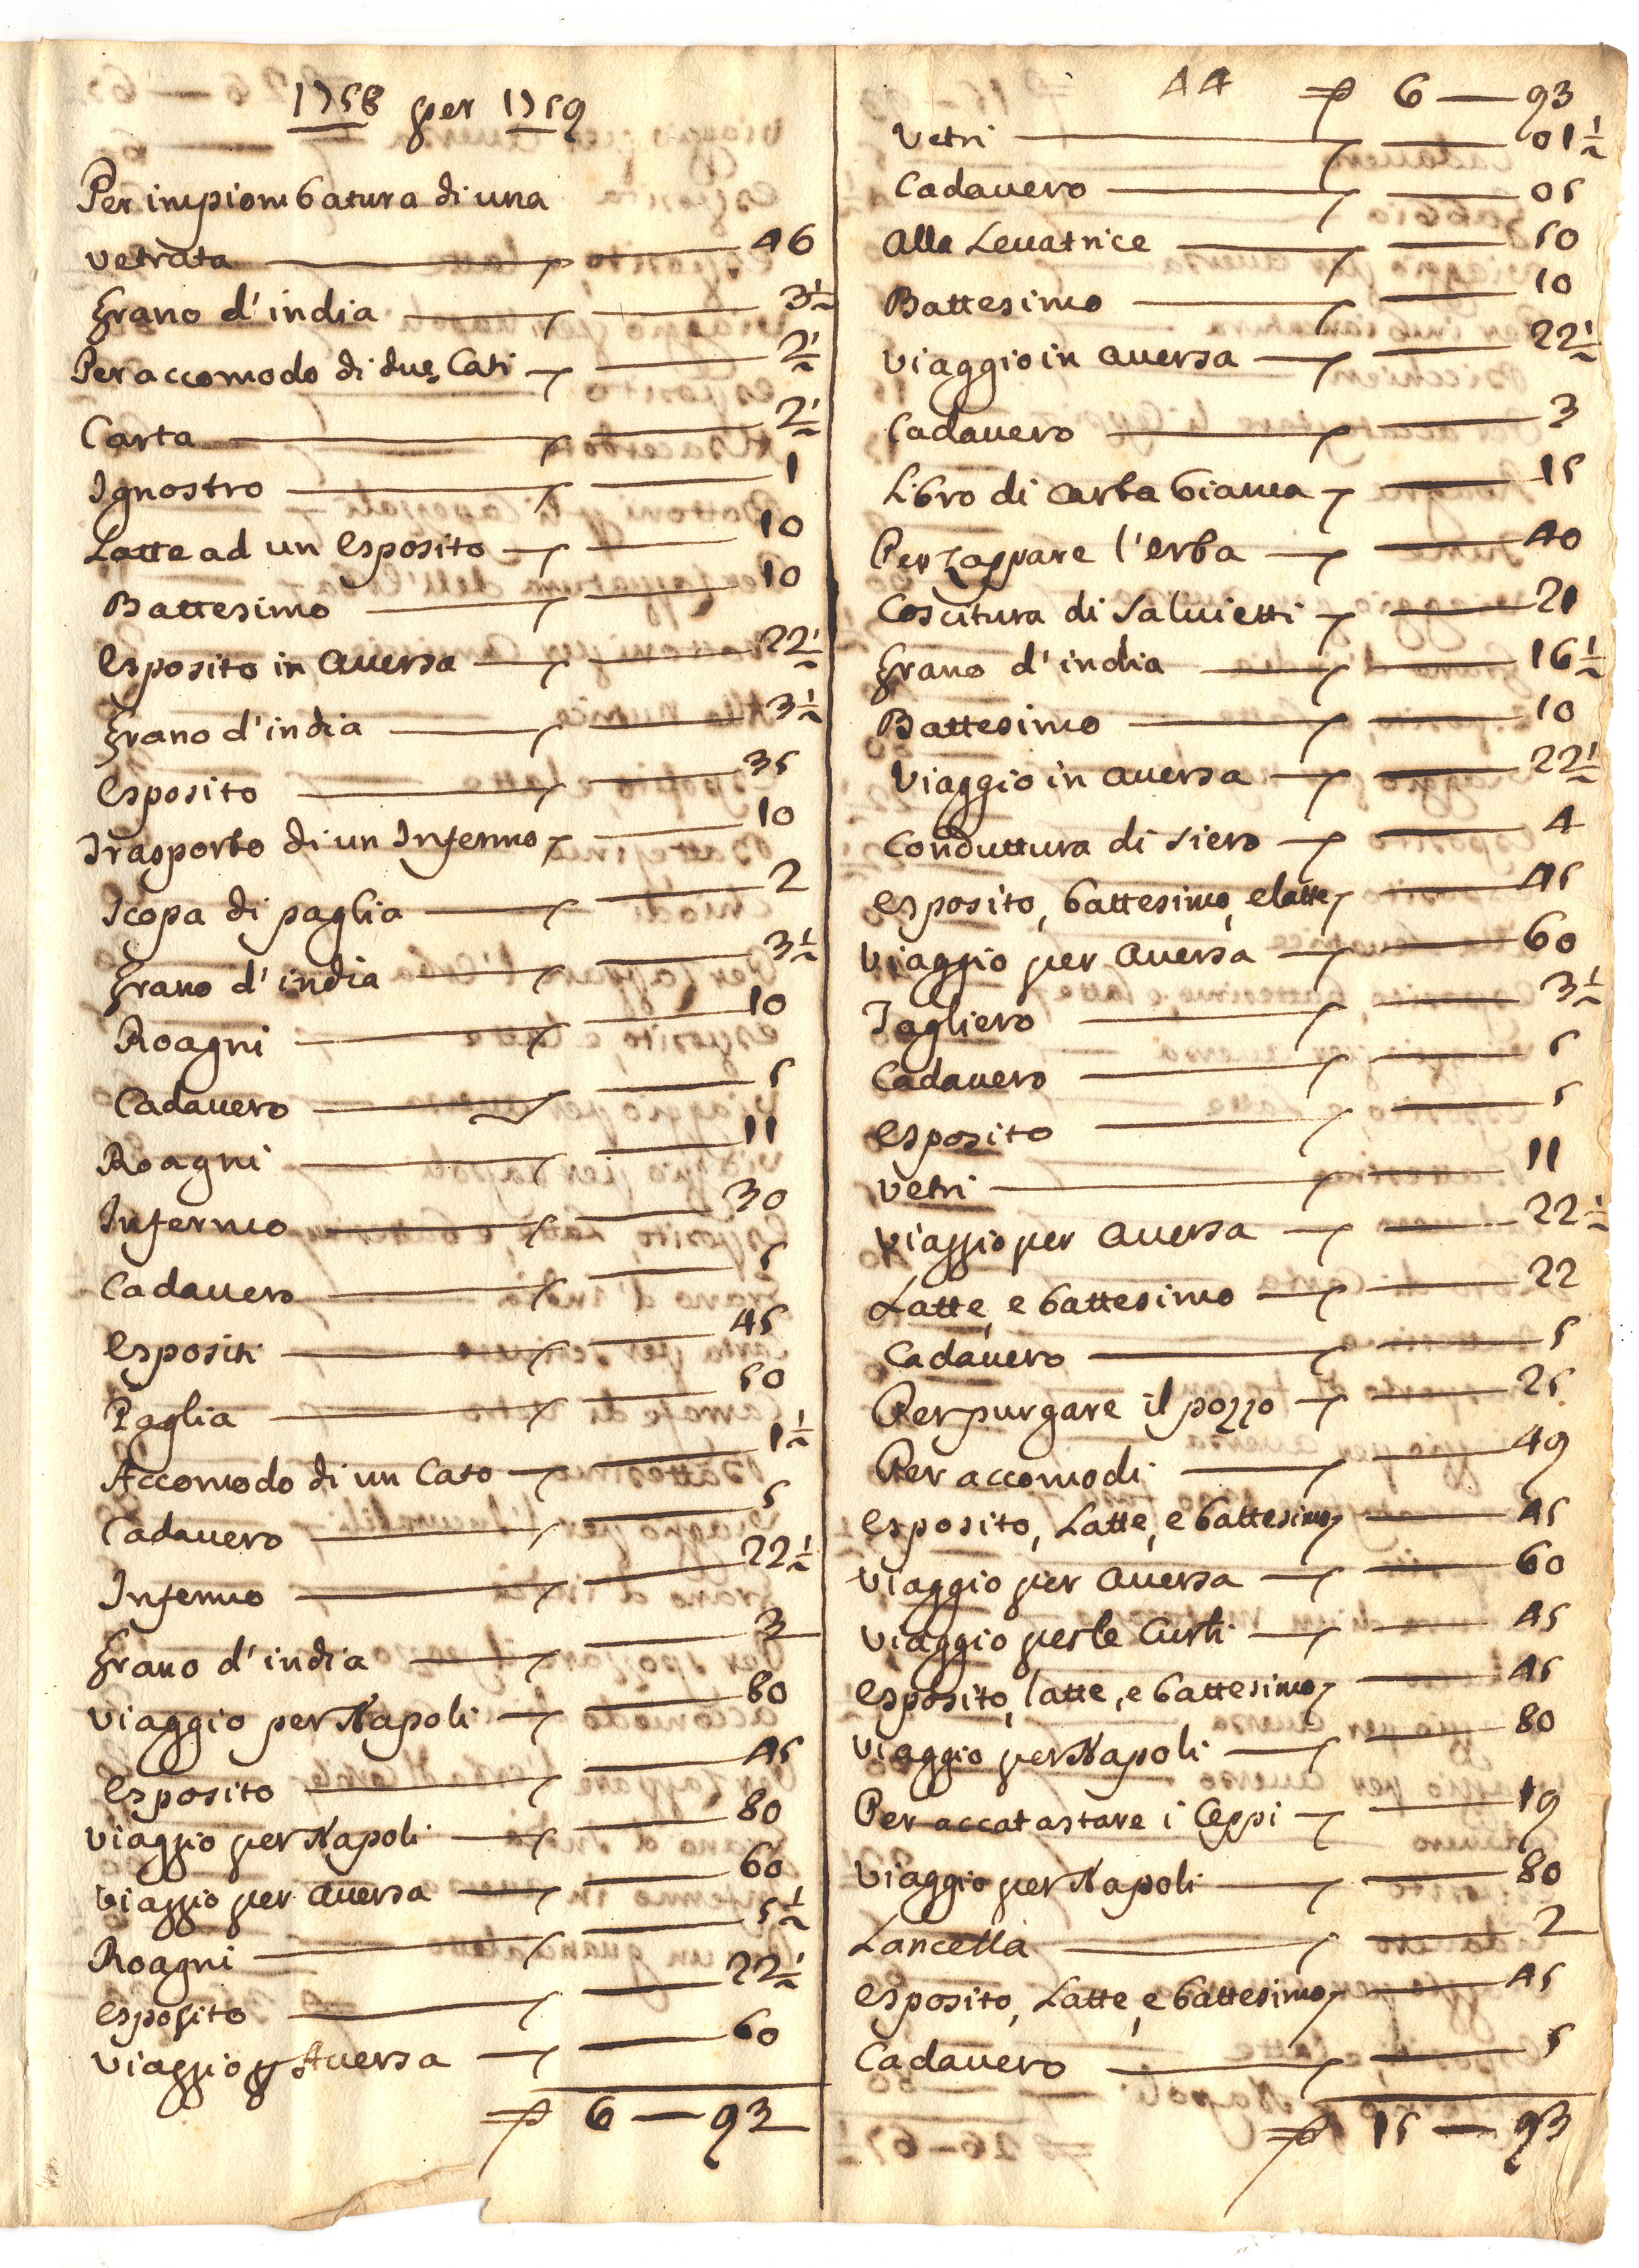 1758 per 1759
Per impiombatura di una
vetrata 46
Grano d'india 3½
Per accomodo di due Cati 2½
Carta 2½
Ignostro 1
Latte ad un esposito 10
Battesimo 10
Esposito in Aversa 22½
Grano d'india 3½
Esposito 35
Trasporto di un Infermo 10
Scopa di paglia 2
Grano d'india 3½
Roagni 10
Cadavero 5
Roagni 11
Infermo 30
Cadavero 5
Espositi 45
Paglia 50
Accomodo di un Cato 1½
Cadavero 5
Infermo 22½
Grano d'india 3
Viaggio per Napoli 80
Esposito 45
Viaggio per Napoli 80
Viaggio per Aversa 60
Roagni 5½
Esposito 22½
Viaggio p Aversa 60
6 — 93
44
6 — 93
Vetri 01½
Cadavero 05
Alla Levatrice 50
Battesimo 10
Viaggio in Aversa 22½
Cadavero 3
Libro di carta bianca 15
Per zappare l'erba 40
Coscitura di Salvietti 21
Grano d'india 16½
Battesimo 10
Viaggio in Aversa 22½
Conduttura di siero 4
Esposito, battesimo, e latte 45
Viaggio per Aversa 60
Tagliero 3½
Cadavero 5
Esposito 5
Vetri 11
Viaggio per Aversa 22½
Latte, e battesimo 22
Cadavero 5
Per purgare il pozzo 25
Per accomodi 49
Esposito, Latte, e battesimo 45
Viaggio per Aversa 60
Viaggio per le Curti 45
Esposito, latte, e battesimo 45
Viaggio per Napoli 80
Per accatastare i Ceppi 19
Viaggio per Napoli 80
Lancella 2
Esposito, Latte, e battesimo 45
Cadavero 5
15 — 93